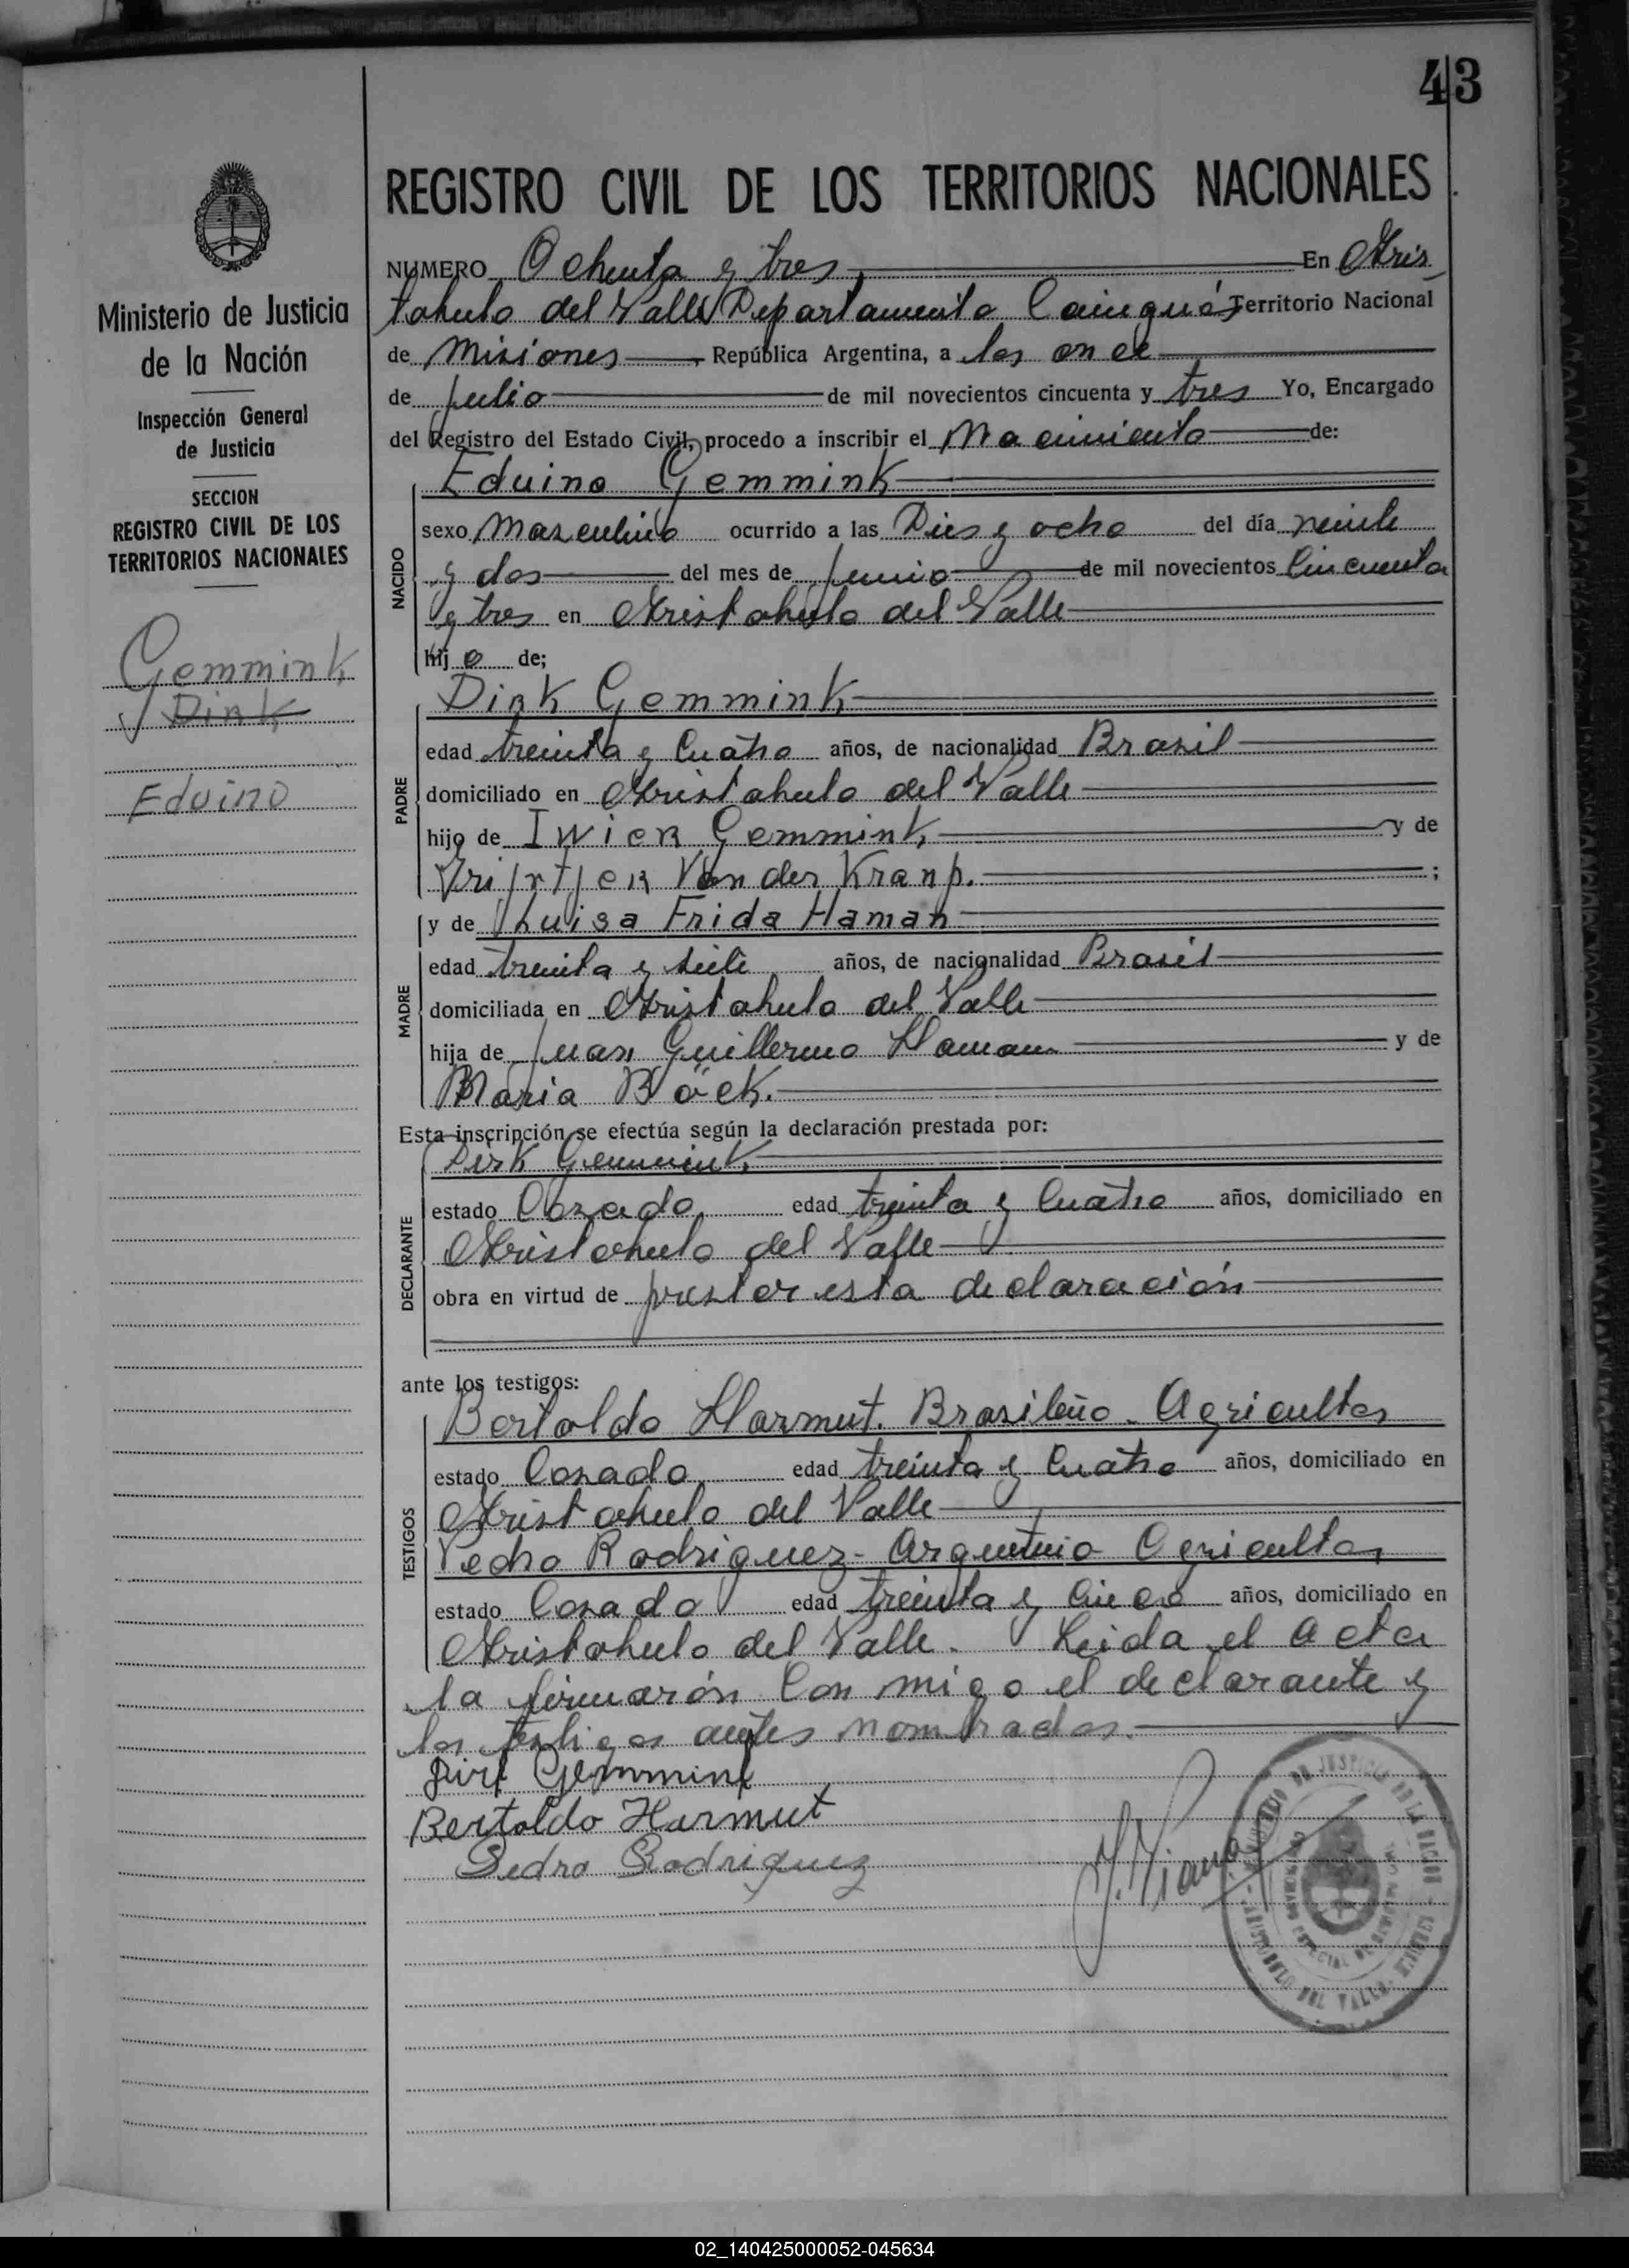 43
REGISTRO CIVIL DE LOS TERRITORIOS NACIONALES
Ministerio de Justicia
de la Nación
Inspección General
de Justicia
SECCION
REGISTRO CIVIL DE LOS
TERRITORIOS NACIONALES
Gemmink
Dirk
Eduino
NUMERO Ochenta y tres En Aris
tobulo del Valle Departamento Cainguás Territorio Nacional
de Misiones República Argentina, a los once
de Julio de mil novecientos cincuenta y tres Yo, Encargado
del Registro del Estado Civil, procedo a inscribir el Nacimiento de:
NACIDO
Eduino Gemmink
sexo Masculino ocurrido a las Dies y ocho del día veinte
y dos del mes de Junio de mil novecientos Cincuenta
y tres en Aristobulo del Valle
hijo de;
PADRE
Dirk Gemmink
edad treinta y Cuatro años, de nacionalidad Brasil
domiciliado en Aristobulo del Valle
hijo de Iwier Gemmink y de
Van der Kranp. ;
MADRE
y de Luisa Frida Haman
edad treinta y siete años, de nacionalidad Brasil
domiciliada en Aristobulo del Valle
hija de Juan Guillermo Haman y de
Maria Böck.
Esta inscripción se efectúa según la declaración prestada por:
DECLARANTE
Dirk Gemmink
estado Casado edad treinta y Cuatro años, domiciliado en
Aristobulo del Valle
obra en virtud de prestar esta declaración
ante los testigos:
TESTIGOS
Bertoldo Harmut. Brasileño - Agricultor
estado Casado edad treinta y Cuatro años, domiciliado en
Aristobulo del Valle
Pedro Rodriguez - Argentino Agricultor
estado Casado edad treinta y Cinco años, domiciliado en
Aristobulo del Valle. Leida el Acta
la firmarón Con migo el declarante y
los testigos antes nombrados.
Gemmink
Bertoldo Harmut
Pedro Rodriguez
MINISTERIO DE JUSTICIA DE LA NACION
ARISTOBULO DEL VALLE, MISIONES
02_140425000052-045634